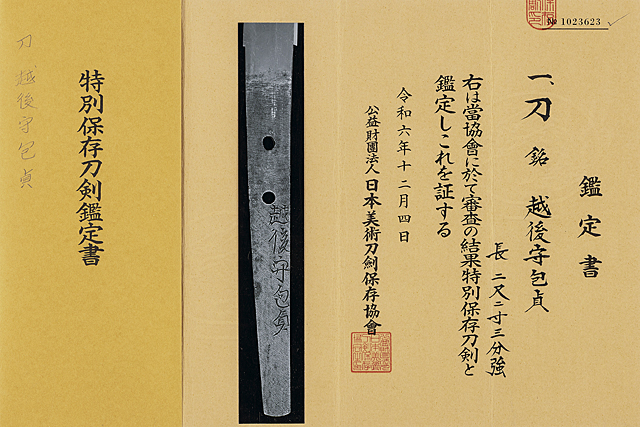 № 1023623
鑑定書
一、刀 銘 越後守包貞
長 二尺二寸三分強
右は當協會に於て審査の結果特別保存刀剣と
鑑定しこれを証する
令和六年十二月四日
公益財團法人 日本美術刀剣保存協會
越後守包貞
特別保存刀剣鑑定書
刀 越後守包貞